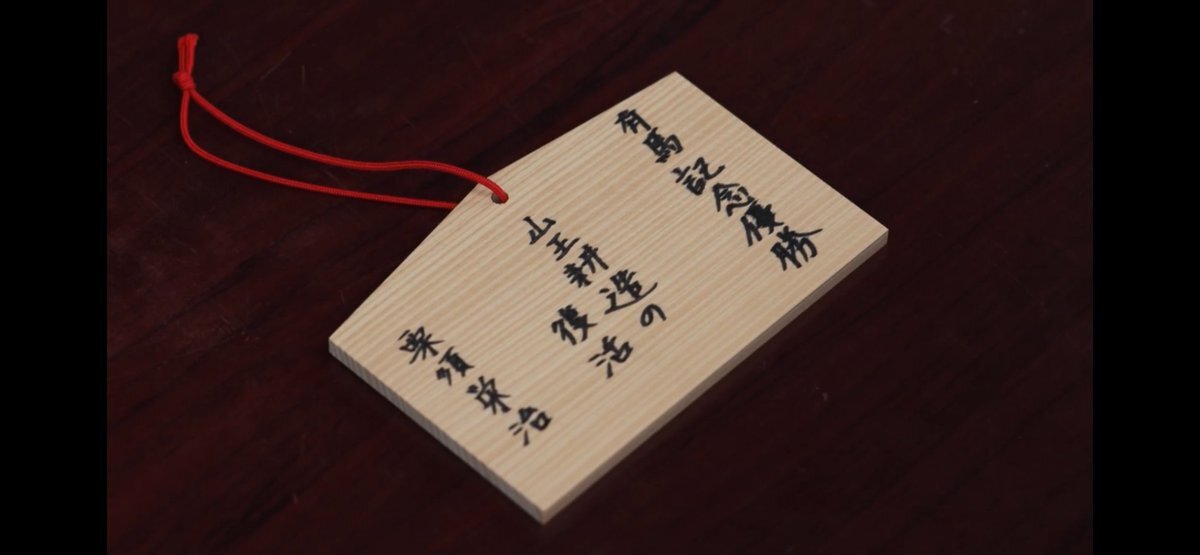 有馬記念優勝
山王耕造の
復活
栗須栄治